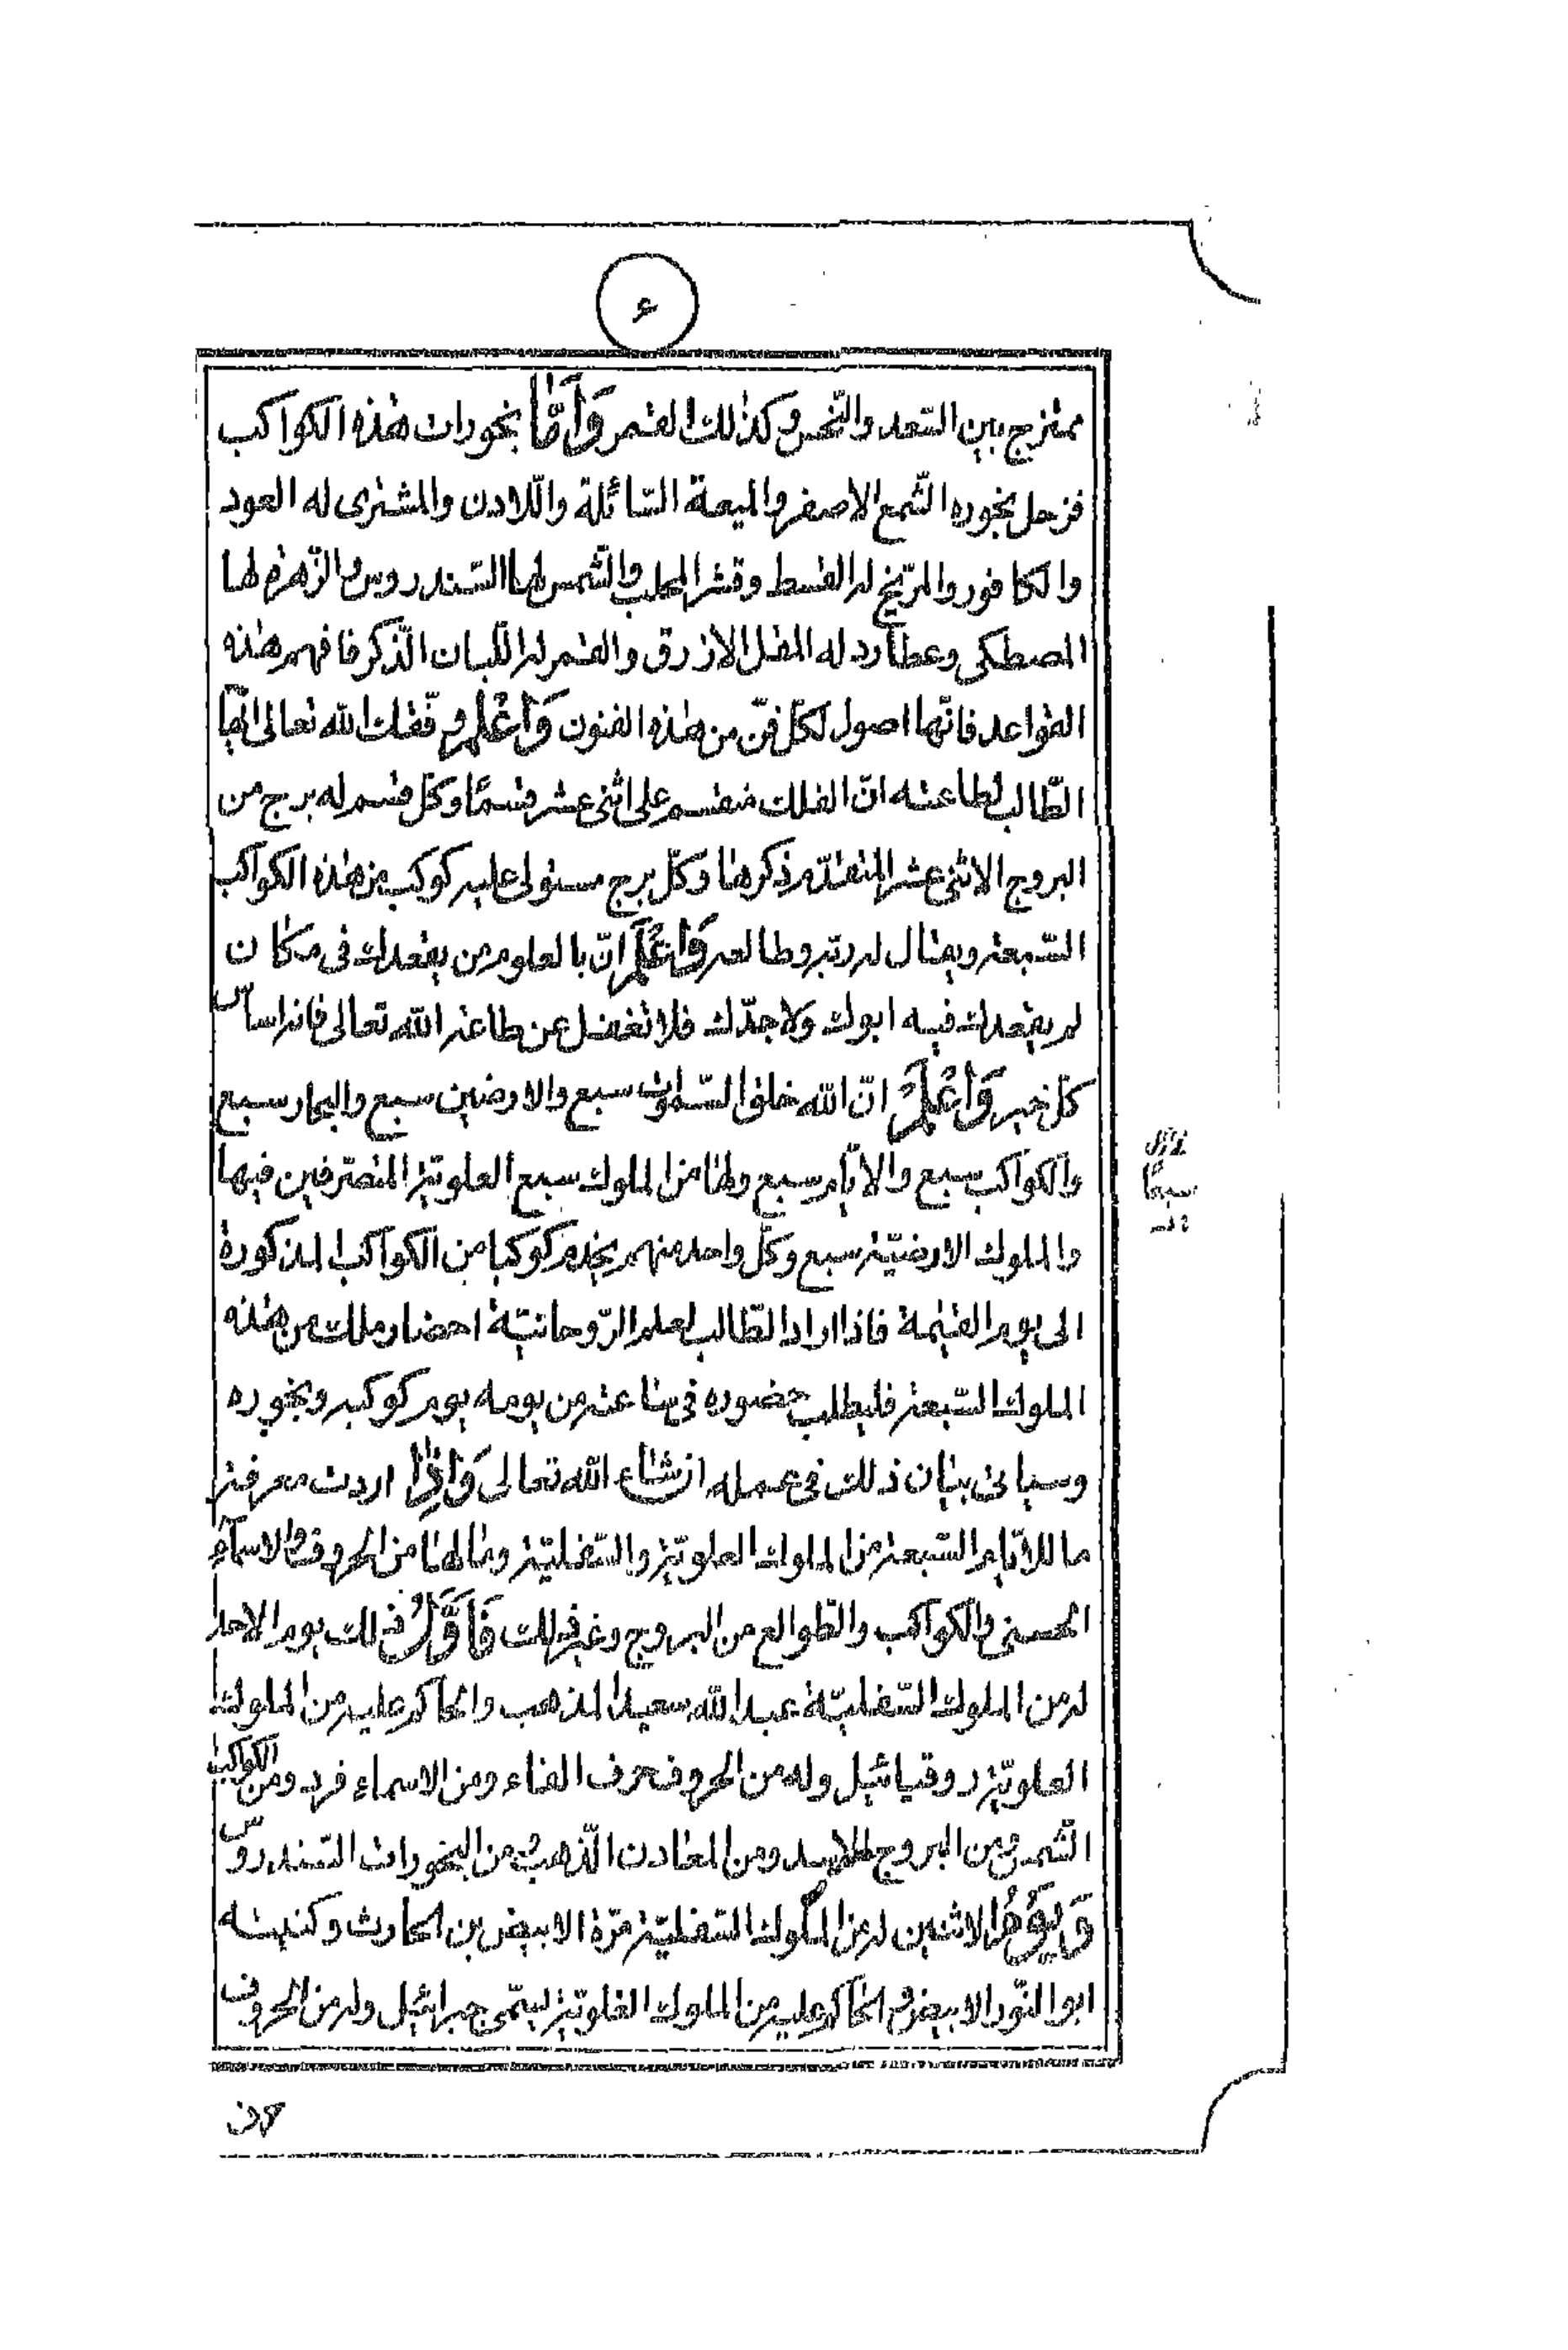 ۴
ممتزج بين السّعد والنّحس وكذٰلك القمر وَأَمَّا بخورات هٰذه الكواكب
فزحل بخوره الشّمع الاصفر والميعة السّائلة واللّادن والمشترى له العود
والكافور والمرّيخ له القسط وقشر المحلب والشّمس لها السّندروس والزّهرة لها
المصطكى وعطارد له المقل الازرق والقمر له اللّبان الذّكر فافهم هٰذه
القواعد فانّها اصول لكلّ فنّ من هٰذه الفنون وَاعْلَمْ وفّقك الله تعالى ايّها
الطّالب لطاعته انّ الفلك منقسم على اثنى عشر قسمًا وكلّ قسم له برج من
البروج الاثنى عشر المتقدّم ذكرها وكلّ برج مستولى عليه كوكب من هٰذه الكواكب
السّبعة ويقال له ربّه وطالعه وَاعْلَمْ انّ بالعلوم من يقعدك فى مكان
لم يقعدك فيه ابوك ولا جدّك فلا تغفل عن طاعة الله تعالى فانه اساس
كلّ خير وَاعْلَمْ انّ الله خلق السّمٰوات سبع والارضين سبع والبحار سبع
والكواكب سبع والايّام سبع ولها من الملوك سبع العلويّة المتصرّفين فيها
والملوك الارضيّة سبع وكلّ واحد منهم يخدم كوكبا من الكواكب المذكورة
الى يوم القيٰمة فاذا اراد الطّالب لعلم الرّوحانيّة احضار ملك من هٰذه
الملوك السّبعة فليطلب حضوره فى ساعته من يومه يوم كوكبه وبخوره
وسياتى بيان ذلك فى عمله ان شاء الله تعالى وَاِذَا اردت معرفة
ما للايّام السّبعة من الملوك العلويّة والسّفليّة وما لها من الحروف والاسمآء
الحسنى والكواكب والطّوالع من البروج وغير ذلك فَاَوَّلُ ذلك يوم الاحد
له من الملوك السّفليّة عبد الله سعيد المذهب والحاكم عليه من الملوك
العلويّة روقيائيل وله من الحروف حرف الفاء ومن الاسماء فرد ومن الكواكب
الشّمس ومن البروج الاسد ومن المعادن الذّهب ومن البخورات السّندروس
وَيَوْمُ الاثنين له من الملوك السّفليّة مرّة الابيض بن الحارث وكنيته
ابو النّور الابيض والحاكم عليه من الملوك العلويّة يسمّى جبرائيل وله من الحروف
سبعًا